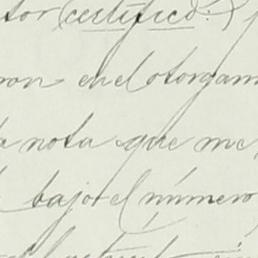 tor certifico: (
ron en el otorgam
a nota que me
bajo el número